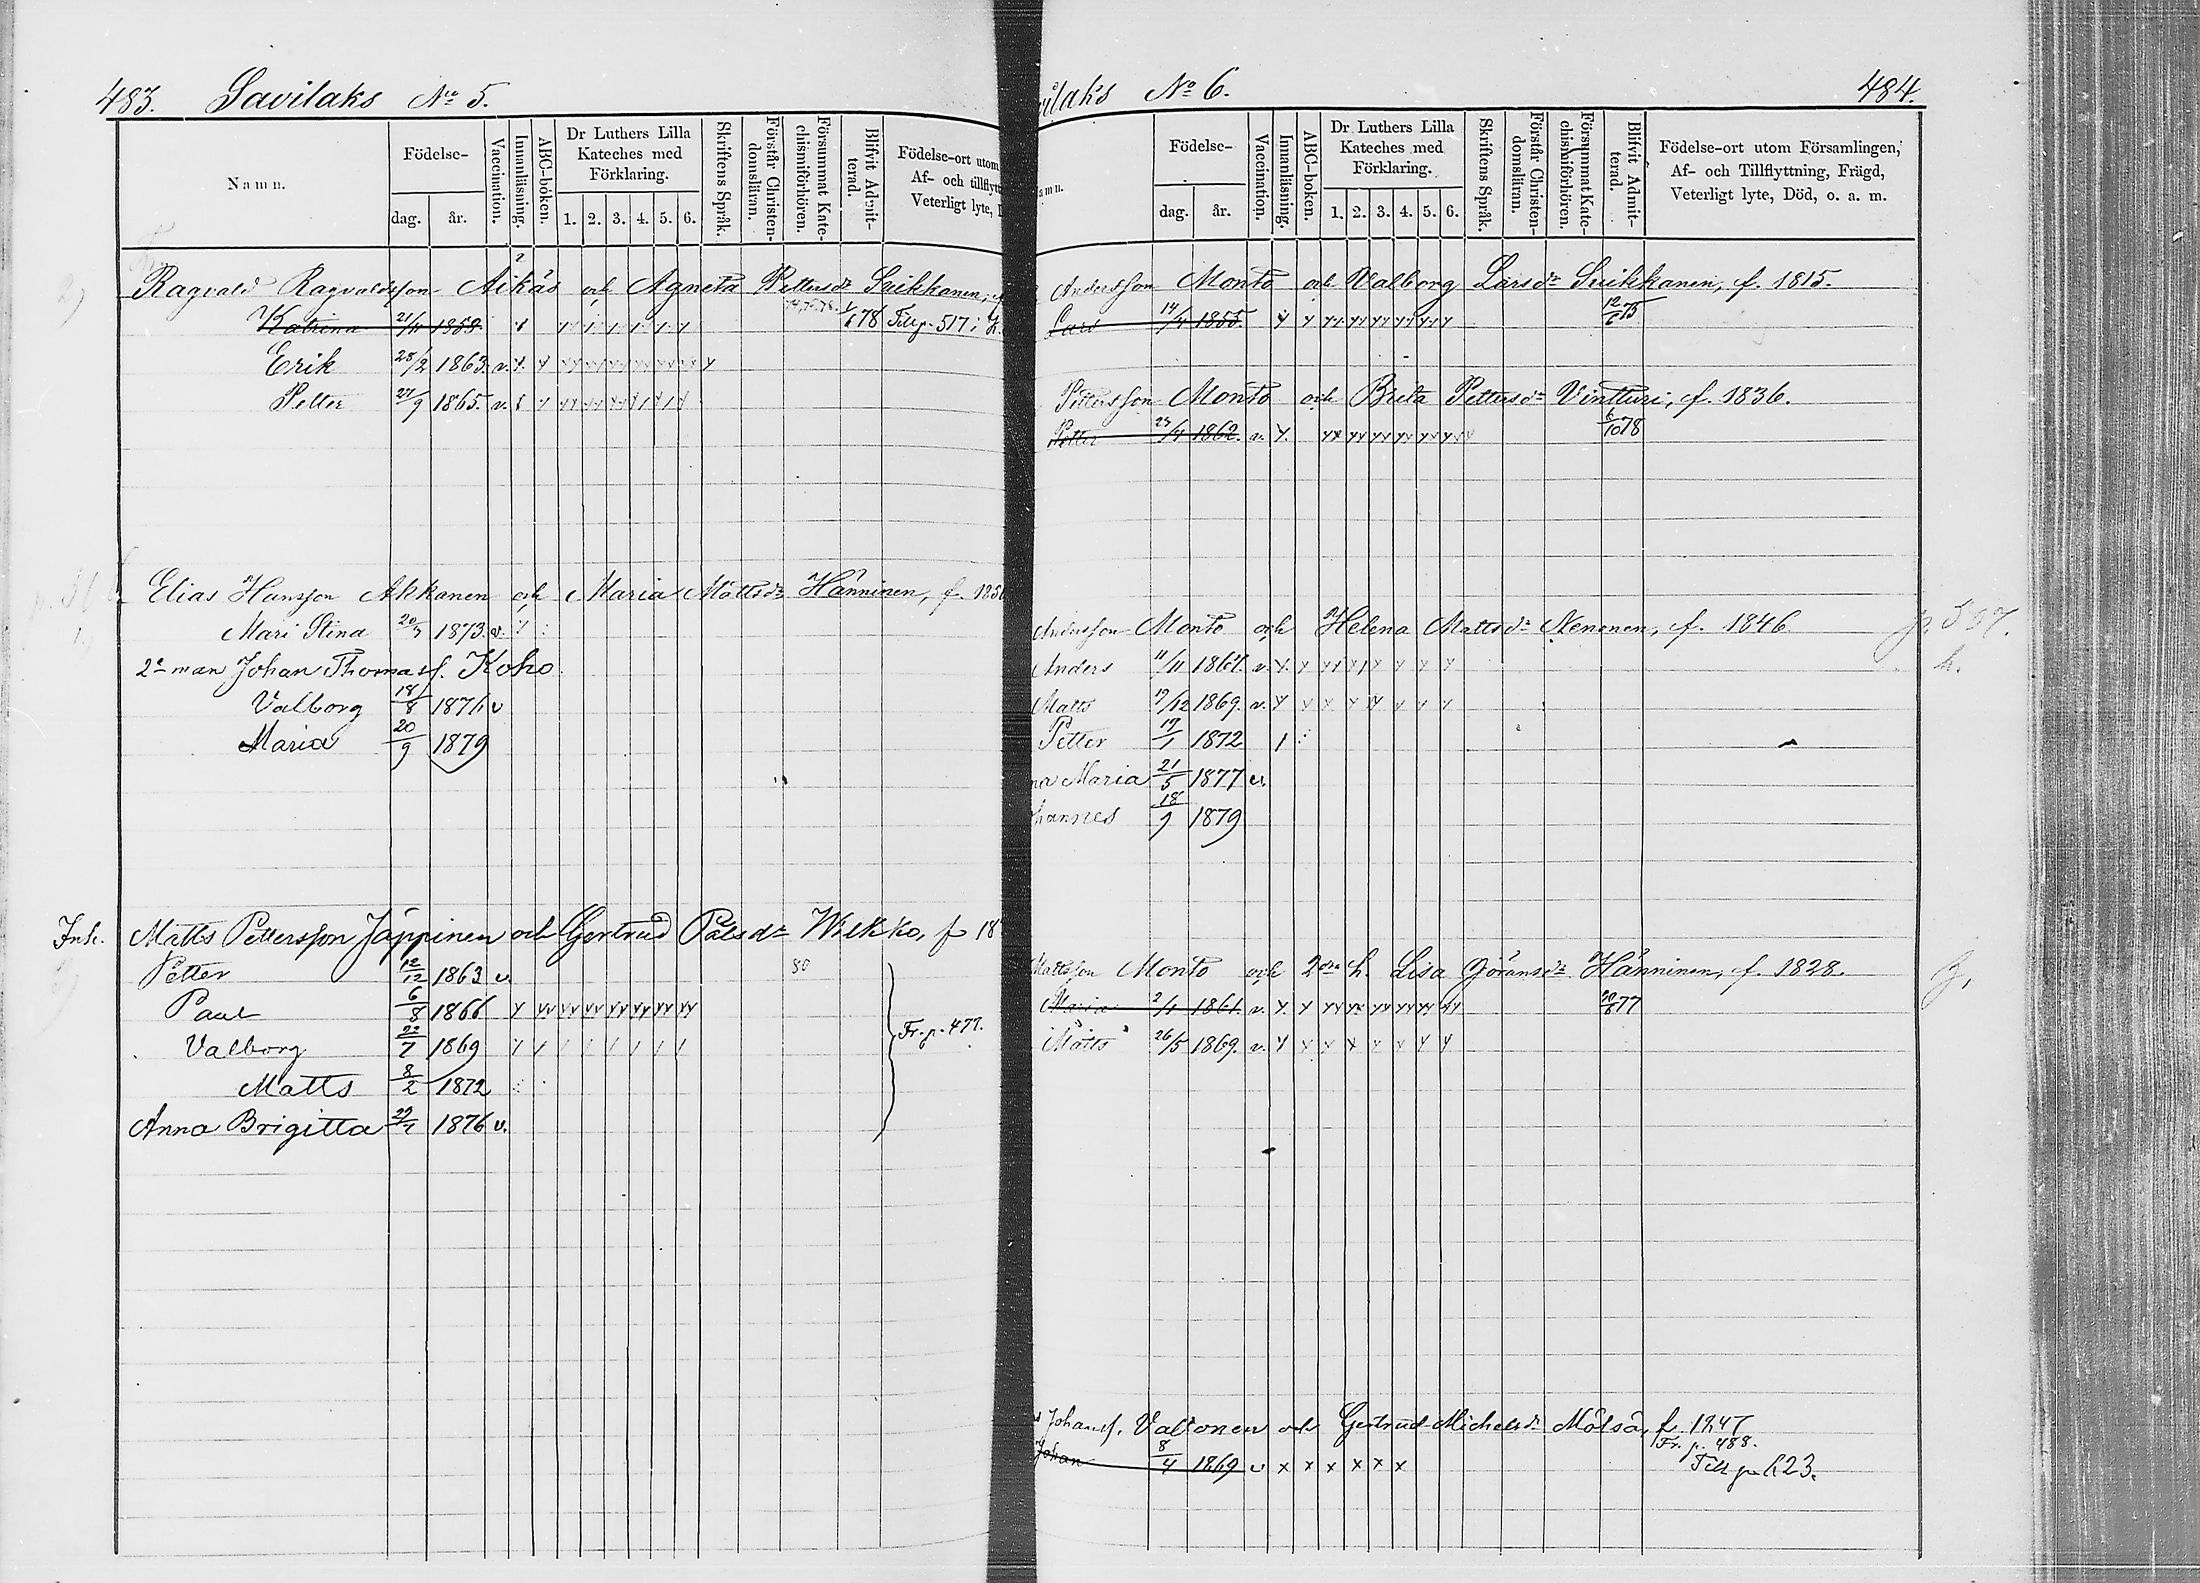 483. Savilaks No 5.
Namn.
Födelse-
dag. år.
Vaccination.
Innanläsning.
ABC-boken.
Dr Luthers Lilla Kateches med Förklaring.
1. 2. 3. 4. 5. 6.
Skriftens Språk.
Förstår Christendomsläran.
Försummat Katechismiförhören.
Blifvit Admitterad.
Födelse-ort utom
Af- och tillflytt
Veterligt lyte,
Ragvald Ragvaldsson Äikäs och Agneta Pettersdr Suikkanen,
Katrina 21/11 1858. 1/6 78 Till p. 517 i
Erik 28/2 1863. v.
Petter 27/9 1865. v.
Elias Hansson Akkanen och Maria Mattsdr Hänninen, f. 185
Mari Stina 20/7 1873. v.
2e man Johan Thomass. Koho
Valborg 18/8 1876 v
Maria 20/9 1879
Inh. Matts Pettersson Jäppinen och Gertrud Pålsdr Wilkko, f 18
Petter 12/12 1863 v. 80
Paul 6/8 1866
Valborg 22/7 1869 Fr. p. 477.
Matts 8/2 1872
Anna Brigitta 29/7 1876 v.
laks No 6. 484.
amn.
Födelse-
dag. år.
Vaccination.
Innanläsning.
ABC-boken.
Dr Luthers Lilla Kateches med Förklaring.
1. 2. 3. 4. 5. 6.
Skriftens Språk.
Förstår Christendomsläran.
Försummat Katechismiförhören.
Blifvit Admitterad.
Födelse-ort utom Församlingen,
Af- och Tillflyttning, Frägd,
Veterligt lyte, Död, o. a. m.
Andersson Monto och Valborg Larsdr Suikkanen, f. 1815.
Lars 14/4 1855. 12/6 75
Pettersson Monto och Brita Pettersdr Vintturi, f. 1836.
Petter 27/4 1862. v. 6/10 78
Andersson Monto och Helena Mattsdr Nenonen, f. 1846 p. 557.
Anders 11/11 1867. v. h.
Matts 19/12 1869. v.
Petter 19/1 1872
na Maria 21/5 1877 v.
hannes 18/9 1879
Mattsson Monto och 2dra h. Lisa Göransdr Hänninen, f. 1828.
Maria 2/4 1861 v. 20/6 77
Matts 26/5 1869. v.
Johanss. Valtonen och Gertrud Michelsdr Mölsä, f. 1847
Fr. p. 488.
Johan 8/4 1869 v x x x x x x Till p. 623.